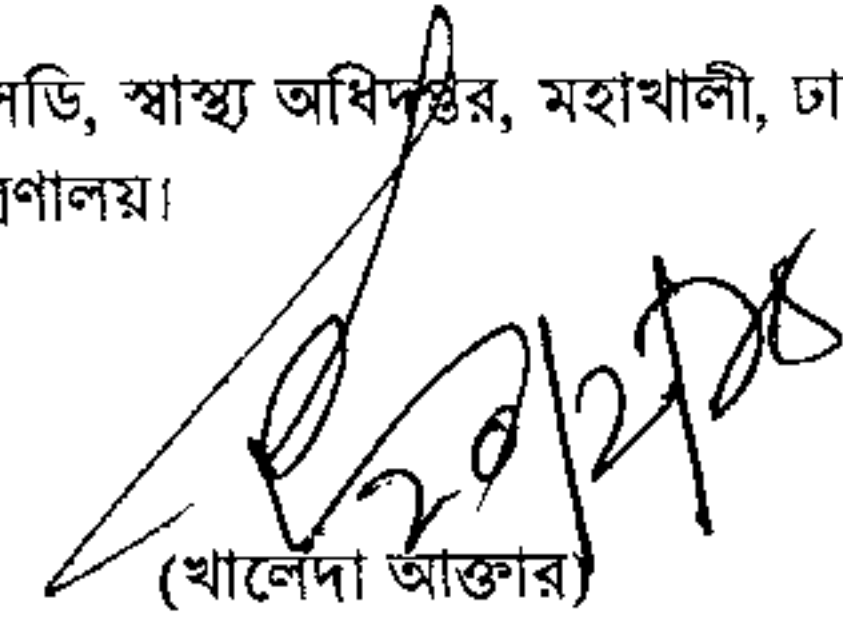 সডি, স্বাস্থ্য অধিদপ্তর, মহাখালী, ঢা
ত্রণালয়।
(খালেদা আক্তার)